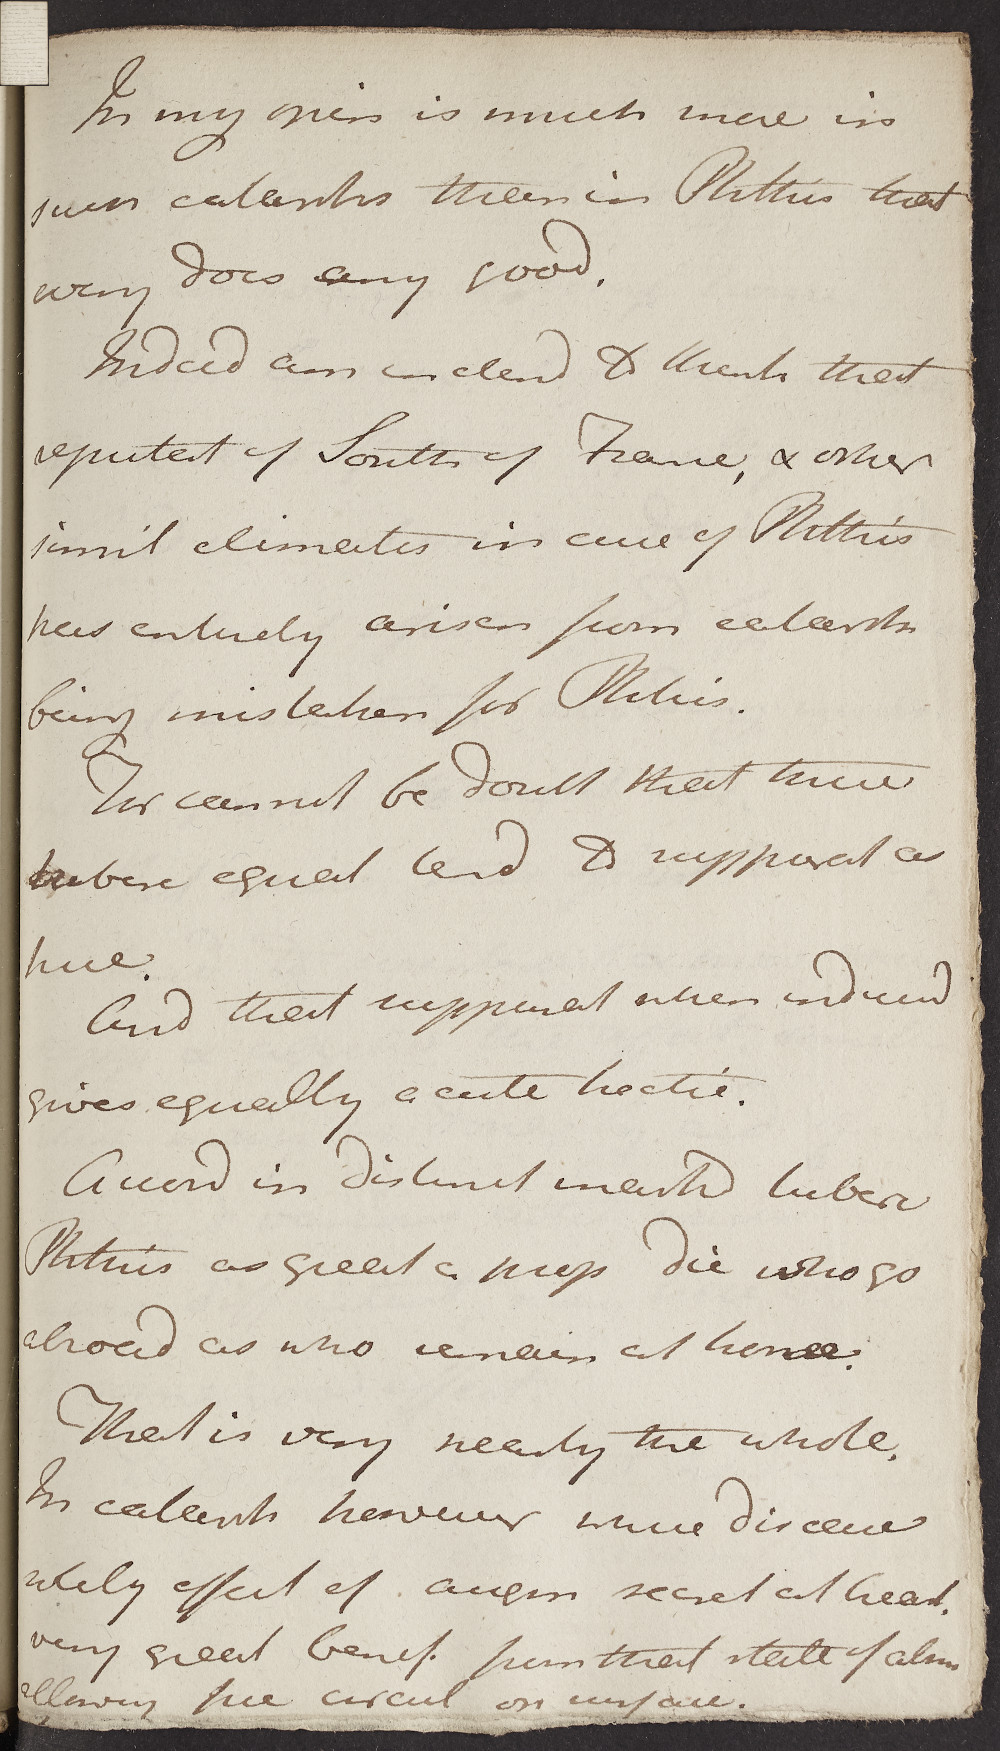 In my opin is much more in
such catarrhs than in Phthis that
every does any good.
Indeed am inclend to think that
reputat of South of France, & other
simil climates in cure of Phthis
has entirely arisen from catarrh
being mistaken for Phthis.
For cannot be doubt that there
tuberc equal tend to suppurat as
here.
And that suppurat when induced
gives equally acute hectic.
Accord in distinct markd tuberc
Phthis as great a prop die who go
abroad as who remain at home.
That is very nearly the whole.
In catarrh however where disease
solely effect of augm secret at least
very great benef. from that state of atm
allowing free circul on surface.